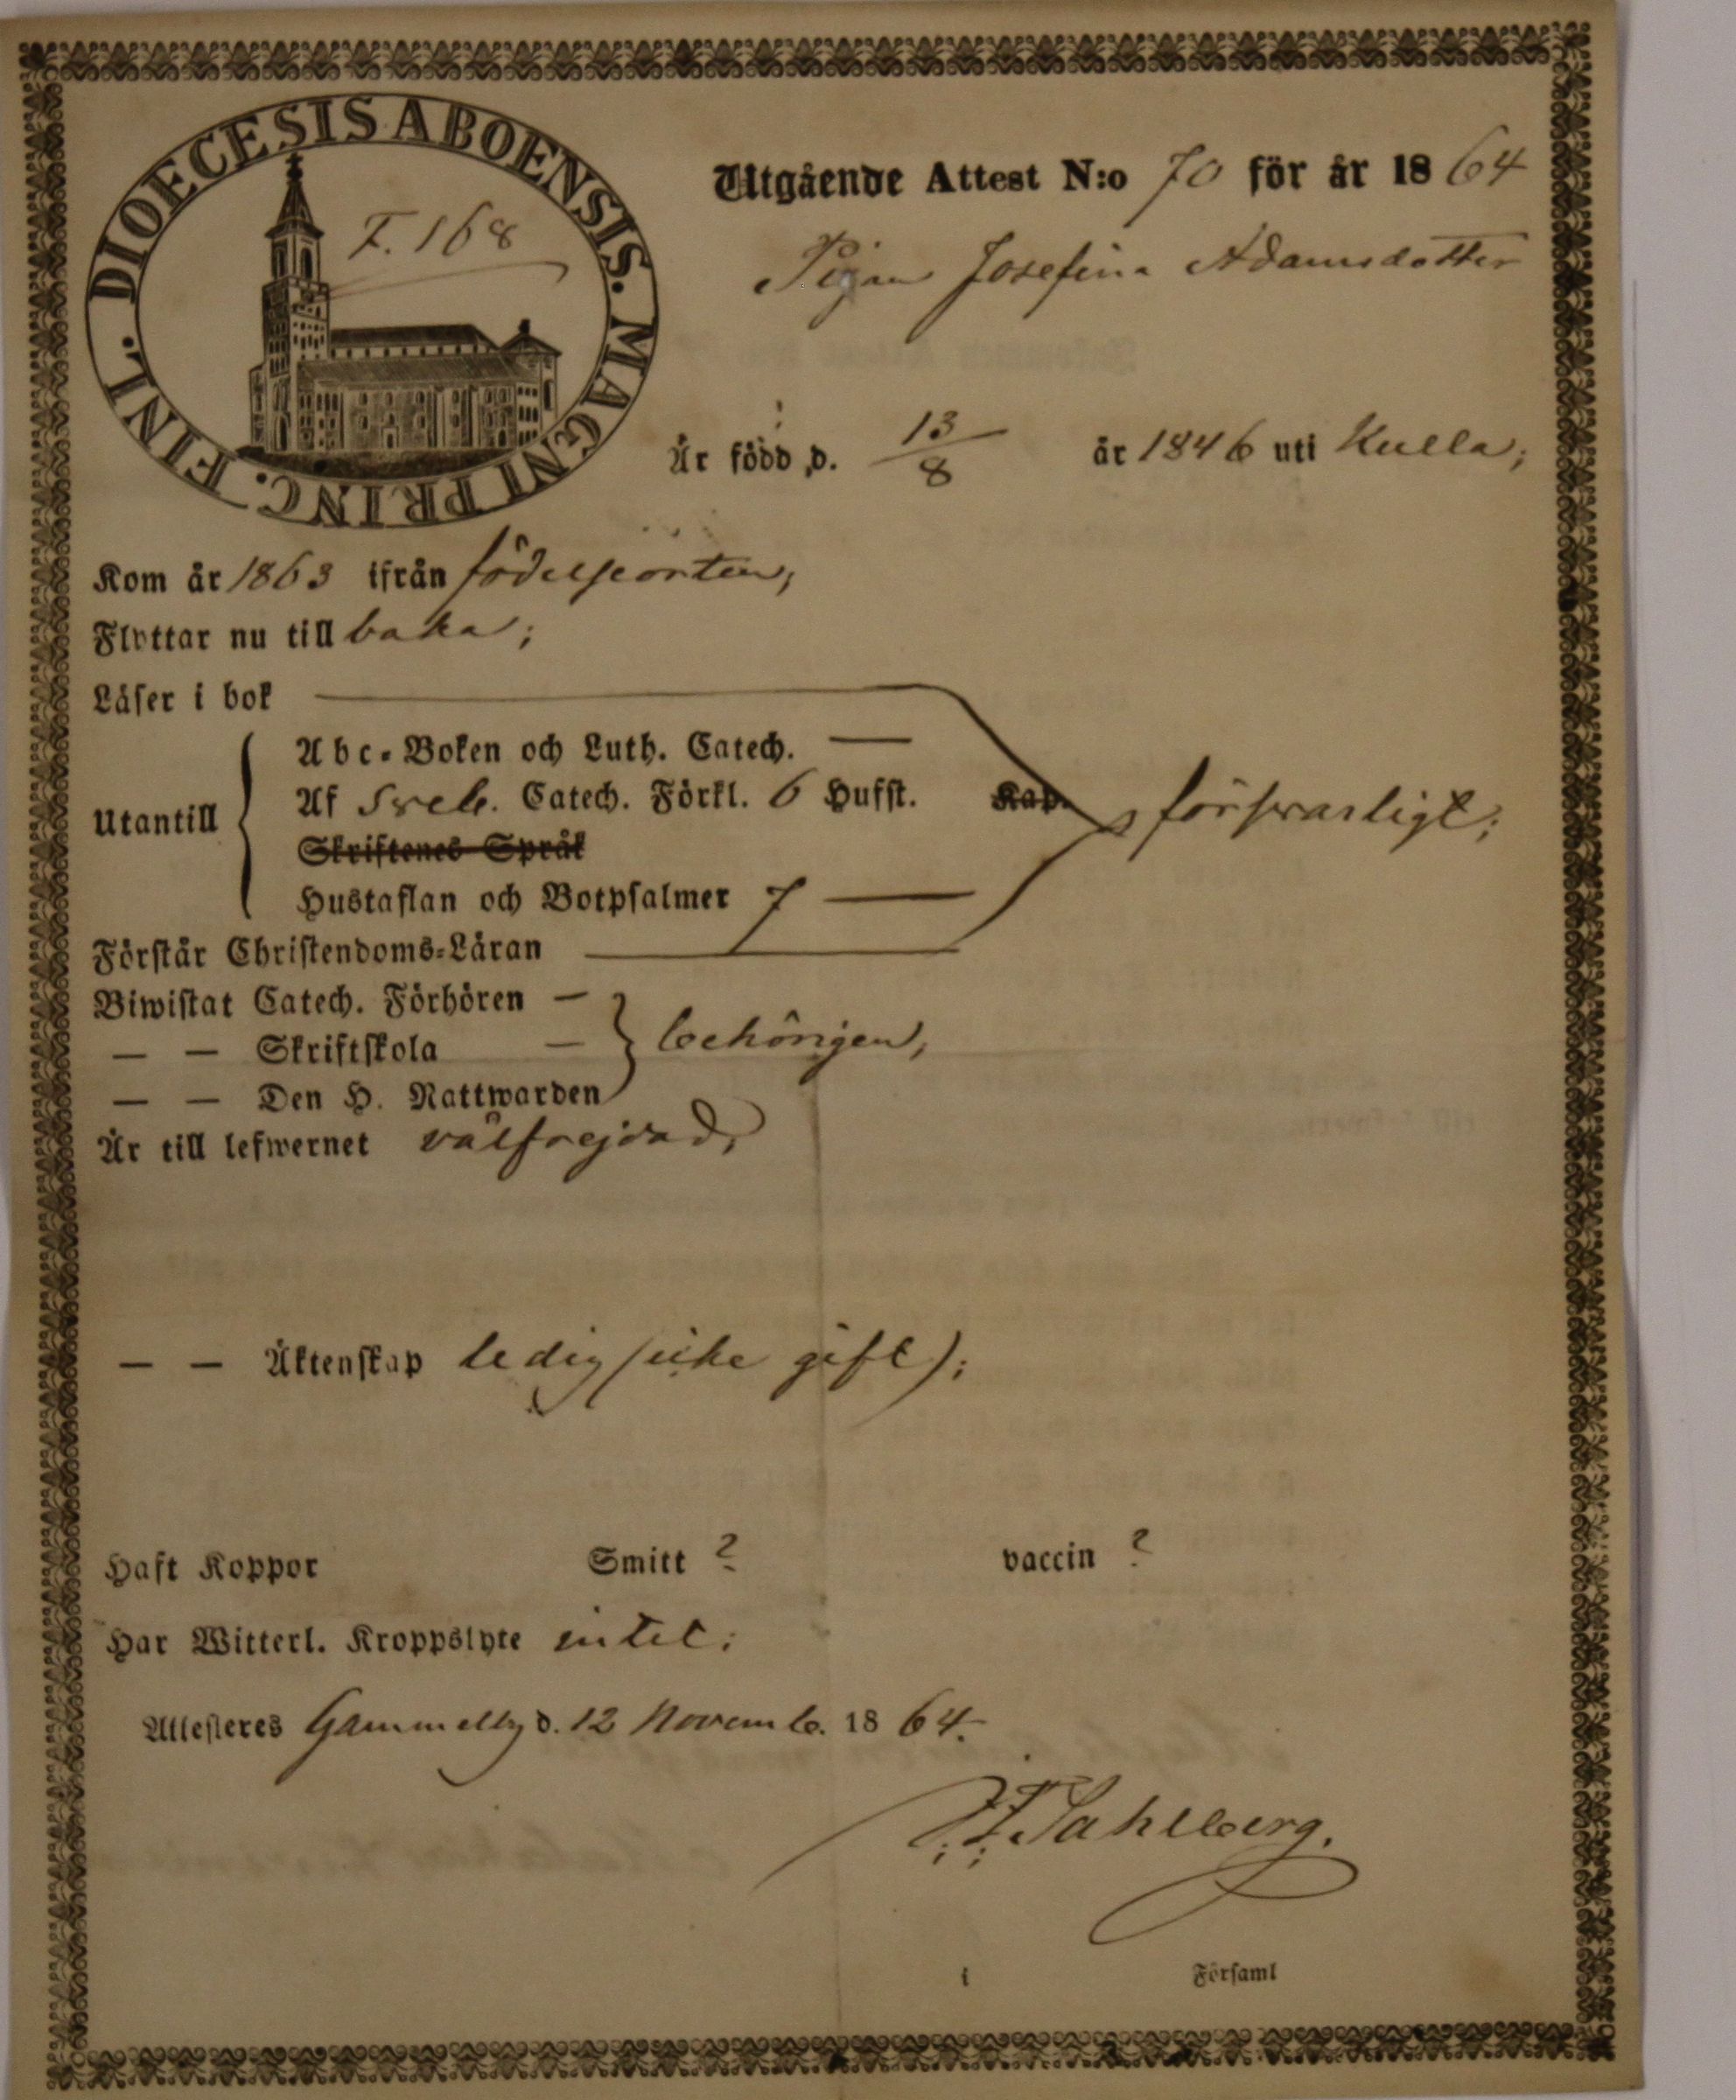 DIOECESIS ABOENSIS. MAGNI PRINC. FINL.
F. 168
Utgående Attest N:o 70 för år 1864
Pigan Josefina Adamsdotter
Är född d. 13/8 år 1846 uti Kulla;
Kom år 1863 ifrån födelseorten;
Flyttar nu till baka;
Läser i bok
Abc-Boken och Luth. Catech. —
Utantill
Af Sveb. Catech. Förkl. 6 Hufst. Kap. försvarligt;
Skriftenes Språk
Hustaflan och Botpsalmer 7 —
Förstår Christendoms-Läran
Biwistat Catech. Förhören —
— — Skriftskola — behörigen,
— — Den H. Nattwarden
Är till lefwernet välfrejdad,
— — Äktenskap ledig (icke gift);
Haft Koppor Smitt ? vaccin ?
Har Witterl. Kroppslyte intet;
Attesteres Gammelby d. 12 Novemb. 1864.
Sahlberg.
i Församl